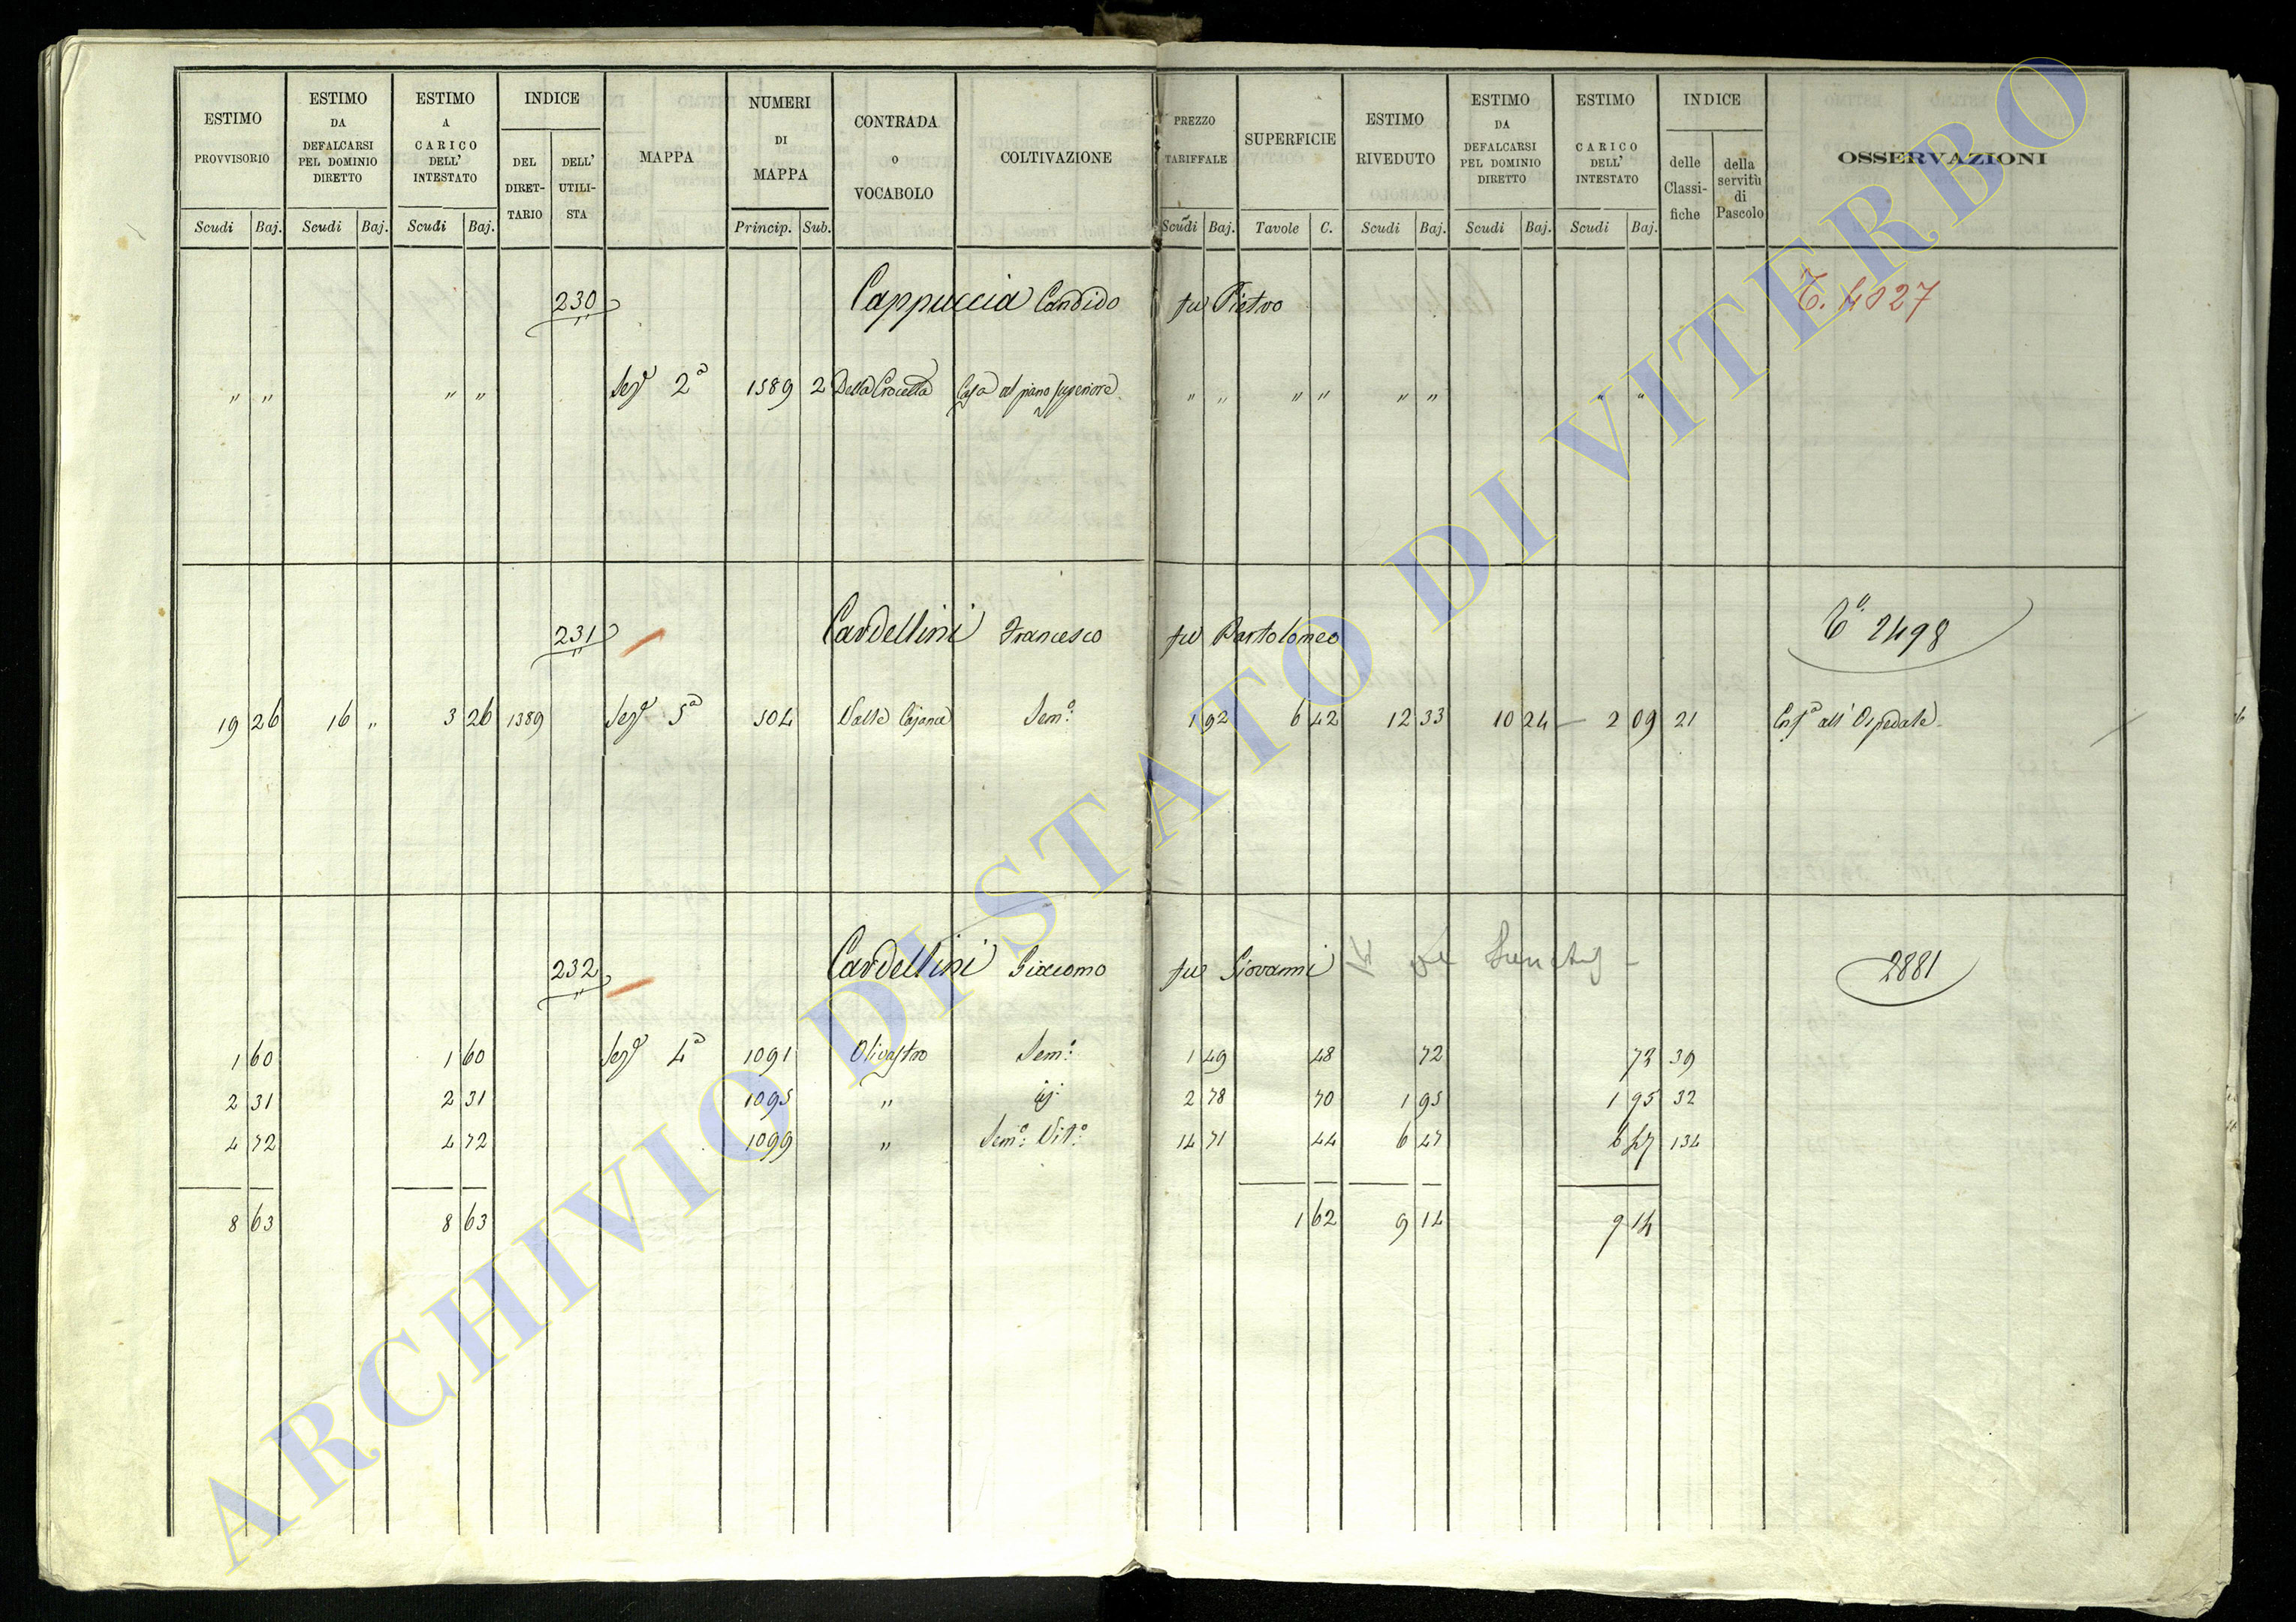 ESTIMO PROVVISORIO Scudi Baj.
ESTIMO DA DEFALCARSI PEL DOMINIO DIRETTO Scudi Baj.
ESTIMO A CARICO DELL' INTESTATO Scudi Baj.
INDICE DEL DIRET-TARIO DELL' UTILI-STA
MAPPA
NUMERI DI MAPPA Princip. Sub.
CONTRADA O VOCABOLO
COLTIVAZIONE
PREZZO TARIFFALE Scudi Baj.
SUPERFICIE Tavole C.
ESTIMO RIVEDUTO Scudi Baj.
ESTIMO DA DEFALCARSI PEL DOMINIO DIRETTO Scudi Baj.
ESTIMO A CARICO DELL' INTESTATO Scudi Baj.
INDICE delle Classi-fiche della servitù di Pascolo
OSSERVAZIONI
230 Cappuccia Candido fu Pietro T. 4027
" " " " Sez.e 2a 1589 2 Della Crocetta Casa al piano superiore " " " " " " " "
231 Cardellini Francesco fu Bartolomeo 2498
19 26 16 " 3 26 1389 Sez.e 5a 504 Valle Cajana Sem.o 1 92 6 42 12 33 10 24 2 09 21 all' Ospedale
232 Cardellini Giacomo fu Giovanni 2881
1 60 1 60 Sez.e 4a 1091 Olivastro Sem.o 1 49 48 72 72 39
2 31 2 31 1095 " id. 2 78 70 1 95 1 95 32
4 72 4 72 1099 " Sem.o Vit.o 14 71 44 6 47 6 47 134
8 63 8 63 1 62 9 14 9 14
ARCHIVIO DI STATO DI VITERBO